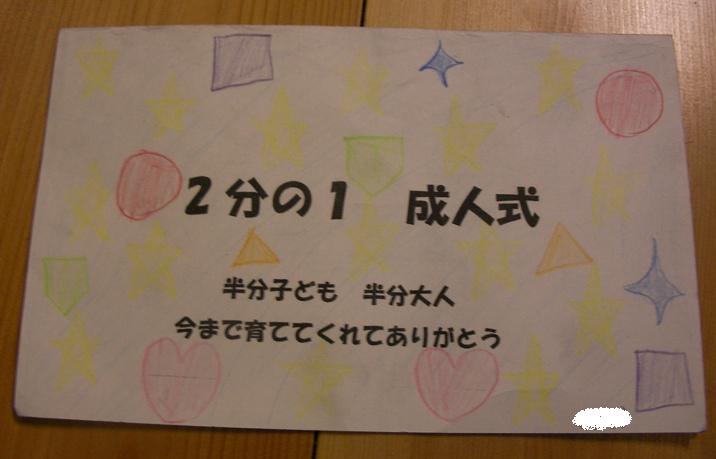 ２分の１　成人式
半分子ども　半分大人
今まで育ててくれてありがとう